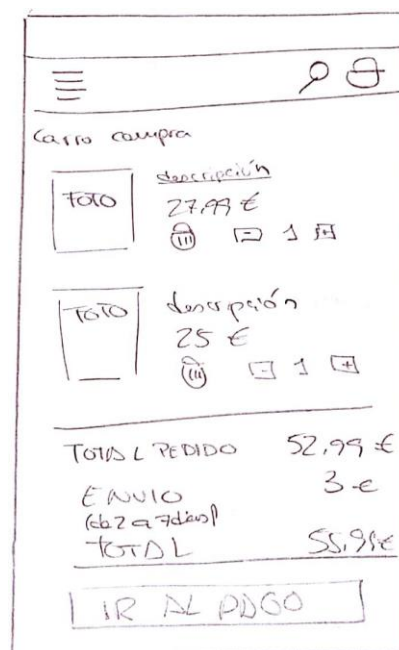 Carro compra
FOTO
descripción
27,99 €
- 1 +
FOTO
descripción
25 €
- 1 +
TOTAL PEDIDO 52,99 €
ENVIO 3 €
(de 2 a 7 dias)
TOTAL 55,99 €
IR AL PAGO